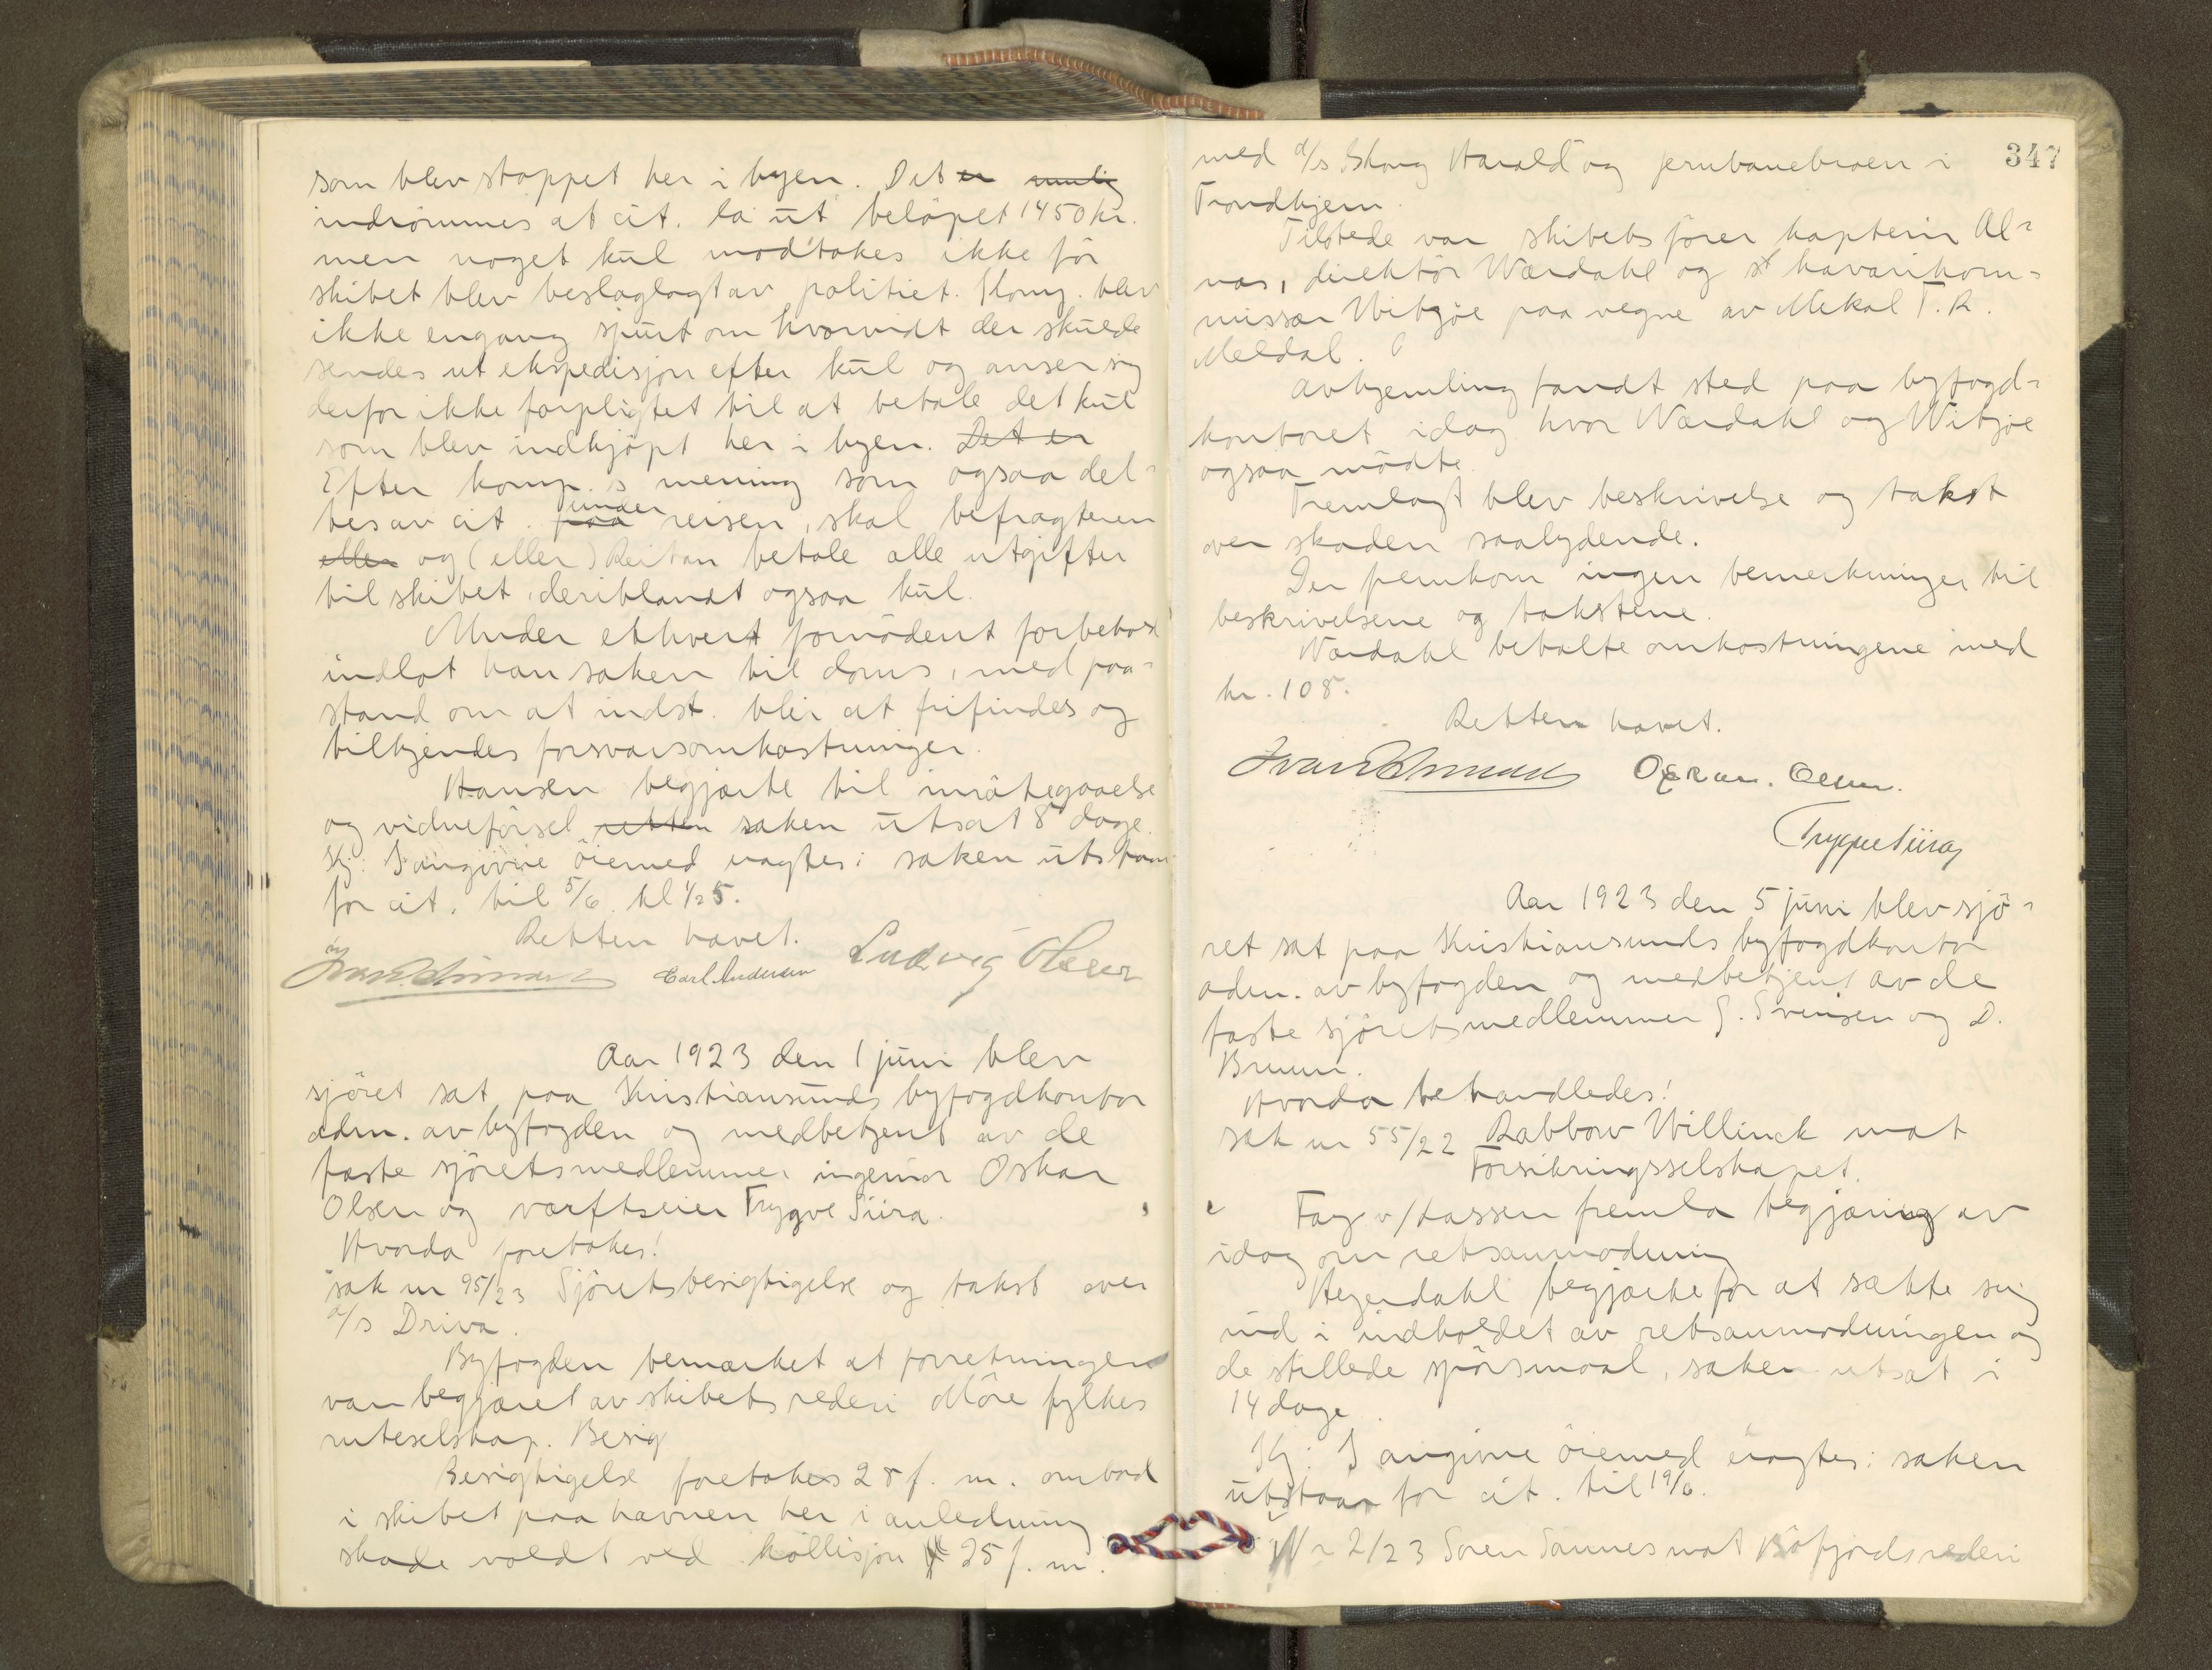 som blev stoppet her i byen. Det er mulig
indrömmes at cit. la ut belöpet 1450 kr.
men noget kul modtokes ikke för
skibet blev beslaglagt av politiet. Komp. blev
ikke engang spurt om hvorvidt der skulde
sendes ut ekspedisjon efter kul og anser sig
derfor ikke forpligtet til at betale det kul
som blev indkjöpt her i byen. Det er
Efter komp.s mening som ogsaa del-
tes av cit. paa under reisen, skal befragteren
eller og (eller) Reitan betale alle utgifter
til skibet, deriblandt ogsaa kul.
Under ethvert fornödent forbehold
indlot han saken til doms, med paa-
stand om at indst. blir at frifindes og
tilkjendes forsvarsomkostninger.
Hansen begjærte til imötegaaelse
og vidneförsel retten saken utsat 8 dage.
Kj: I angivne öiemed nagtes: saken utstaar
for cit. til 5/6 kl 1/2 5.
Retten hævet.
Carl Andersen Ludvig Olsen
Aar 1923 den 1 juni blev
sjöret sat paa Kristiansunds byfogdkontor
adm. av byfogden og medbetjent av de
faste sjöretsmedlemmer ingeniör Oskar
Olsen og værftseier Trygve Siira.
Hvorda foretokes!
sak nr 95/23 Sjöretsbesigtigelse og takst over
d/s Driva.
Byfogden bemærket at forretningen
var begjæret av skibets rederi Möre fylkes
ruteselskap. Besig
Besigtigelse foretokes 28 f. m. ombord
i skibet paa havnen her i anledning
skade voldt ved kollisjon 25 f. m.
347
med d/s Kong Harald og jernbanebroen i
Trondhjem.
Tilstede var skibets förer kaptein Al-
nas, direktör Wærdahl og havarikom-
missær Wibgöe paa vegne av Mekal T. R.
Meldal.
Avhjemling fandt sted paa byfogd-
kontoret idag hvor Wærdahl og Wibgöe
ogsaa mödte.
Fremlagt blev beskrivelse og takst
over skaden saalydende.
Der fremkom ingen bemerkninger til
beskrivelsene og takstene.
Wærdahl betalte omkostningene med
kr. 108.
Retten hævet.
Oskar Olsen.
Trygve Siira
Aar 1923 den 5 juni blev sjö-
ret sat paa Kristiansunds byfogdkontor
adm. av byfogden og medbetjent av de
faste sjöretsmedlemmer S. Svensen og D.
Bruun.
Hvorda behandledes!
Sak nr 55/22 Rabbow Willinck mot
Forsikringsselskapet.
Fag v/ Hassen fremla begjæring av
idag om retsanmodning
Heyerdahl begjærte for at sætte sig
ind i indholdet av retsanmodningen og
de stillede spörsmaal, saken utsat i
14 dage.
Kj: I angivne öiemed nagtes: saken
utstaar for cit. til 19/6.
Nr 2/23 Sören Sannes mot Böfjords rederi